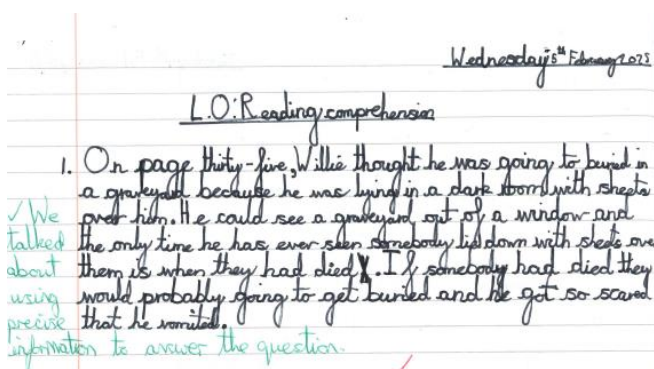 Wednesday 5th February 2025
L.O: Reading comprehension
1. On page thirty-five, Willie thought he was going to buried in
a graveyard because he was lying in a dark room with sheets
over him. He could see a graveyard out of a window and
the only time he has ever seen somebody lied down with sheets over
them is when they had died. If somebody had died they
would probably going to get buried and he got so scared
that he vomited.
✓ We
talked
about
using
precise
information to answer the question.